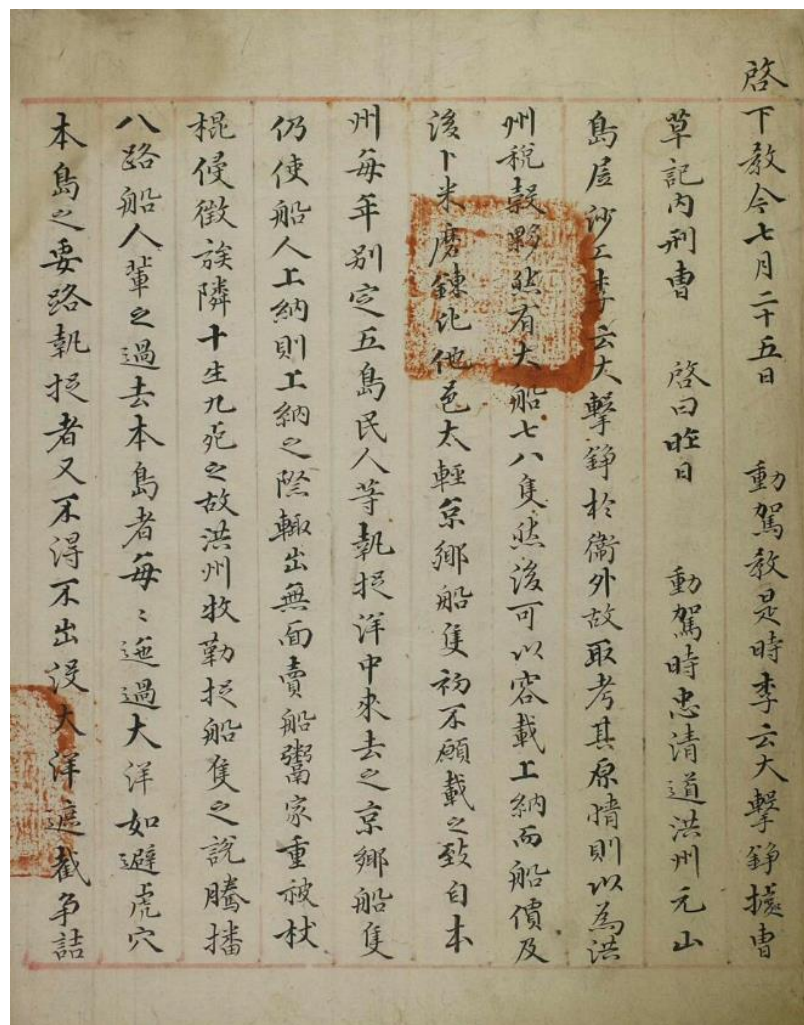 啓
下敎今七月二十五日　動駕敎是時李云大擊錚據曹
草記內刑曹　啓曰昨日　動駕時忠清道洪州元山
島居沙工李云大擊錚於衛外故取考其原情則以爲洪
州稅穀夥然有大船七八隻然後可以容載上納而船價及
後卜米磨鍊比他邑太輕京鄕船隻初不願載之致自本
州每年別定五島民人等執捉洋中來去之京鄕船隻
仍使船人上納則上納之際輒出無面賣船鬻家重被杖
棍侵徵族隣十生九死之故洪州牧勒捉船隻之說騰播
八路船人輩之過去本島者每〻迤過大洋如避虎穴
本島之要路執捉者又不得不出沒大洋遮截爭詰